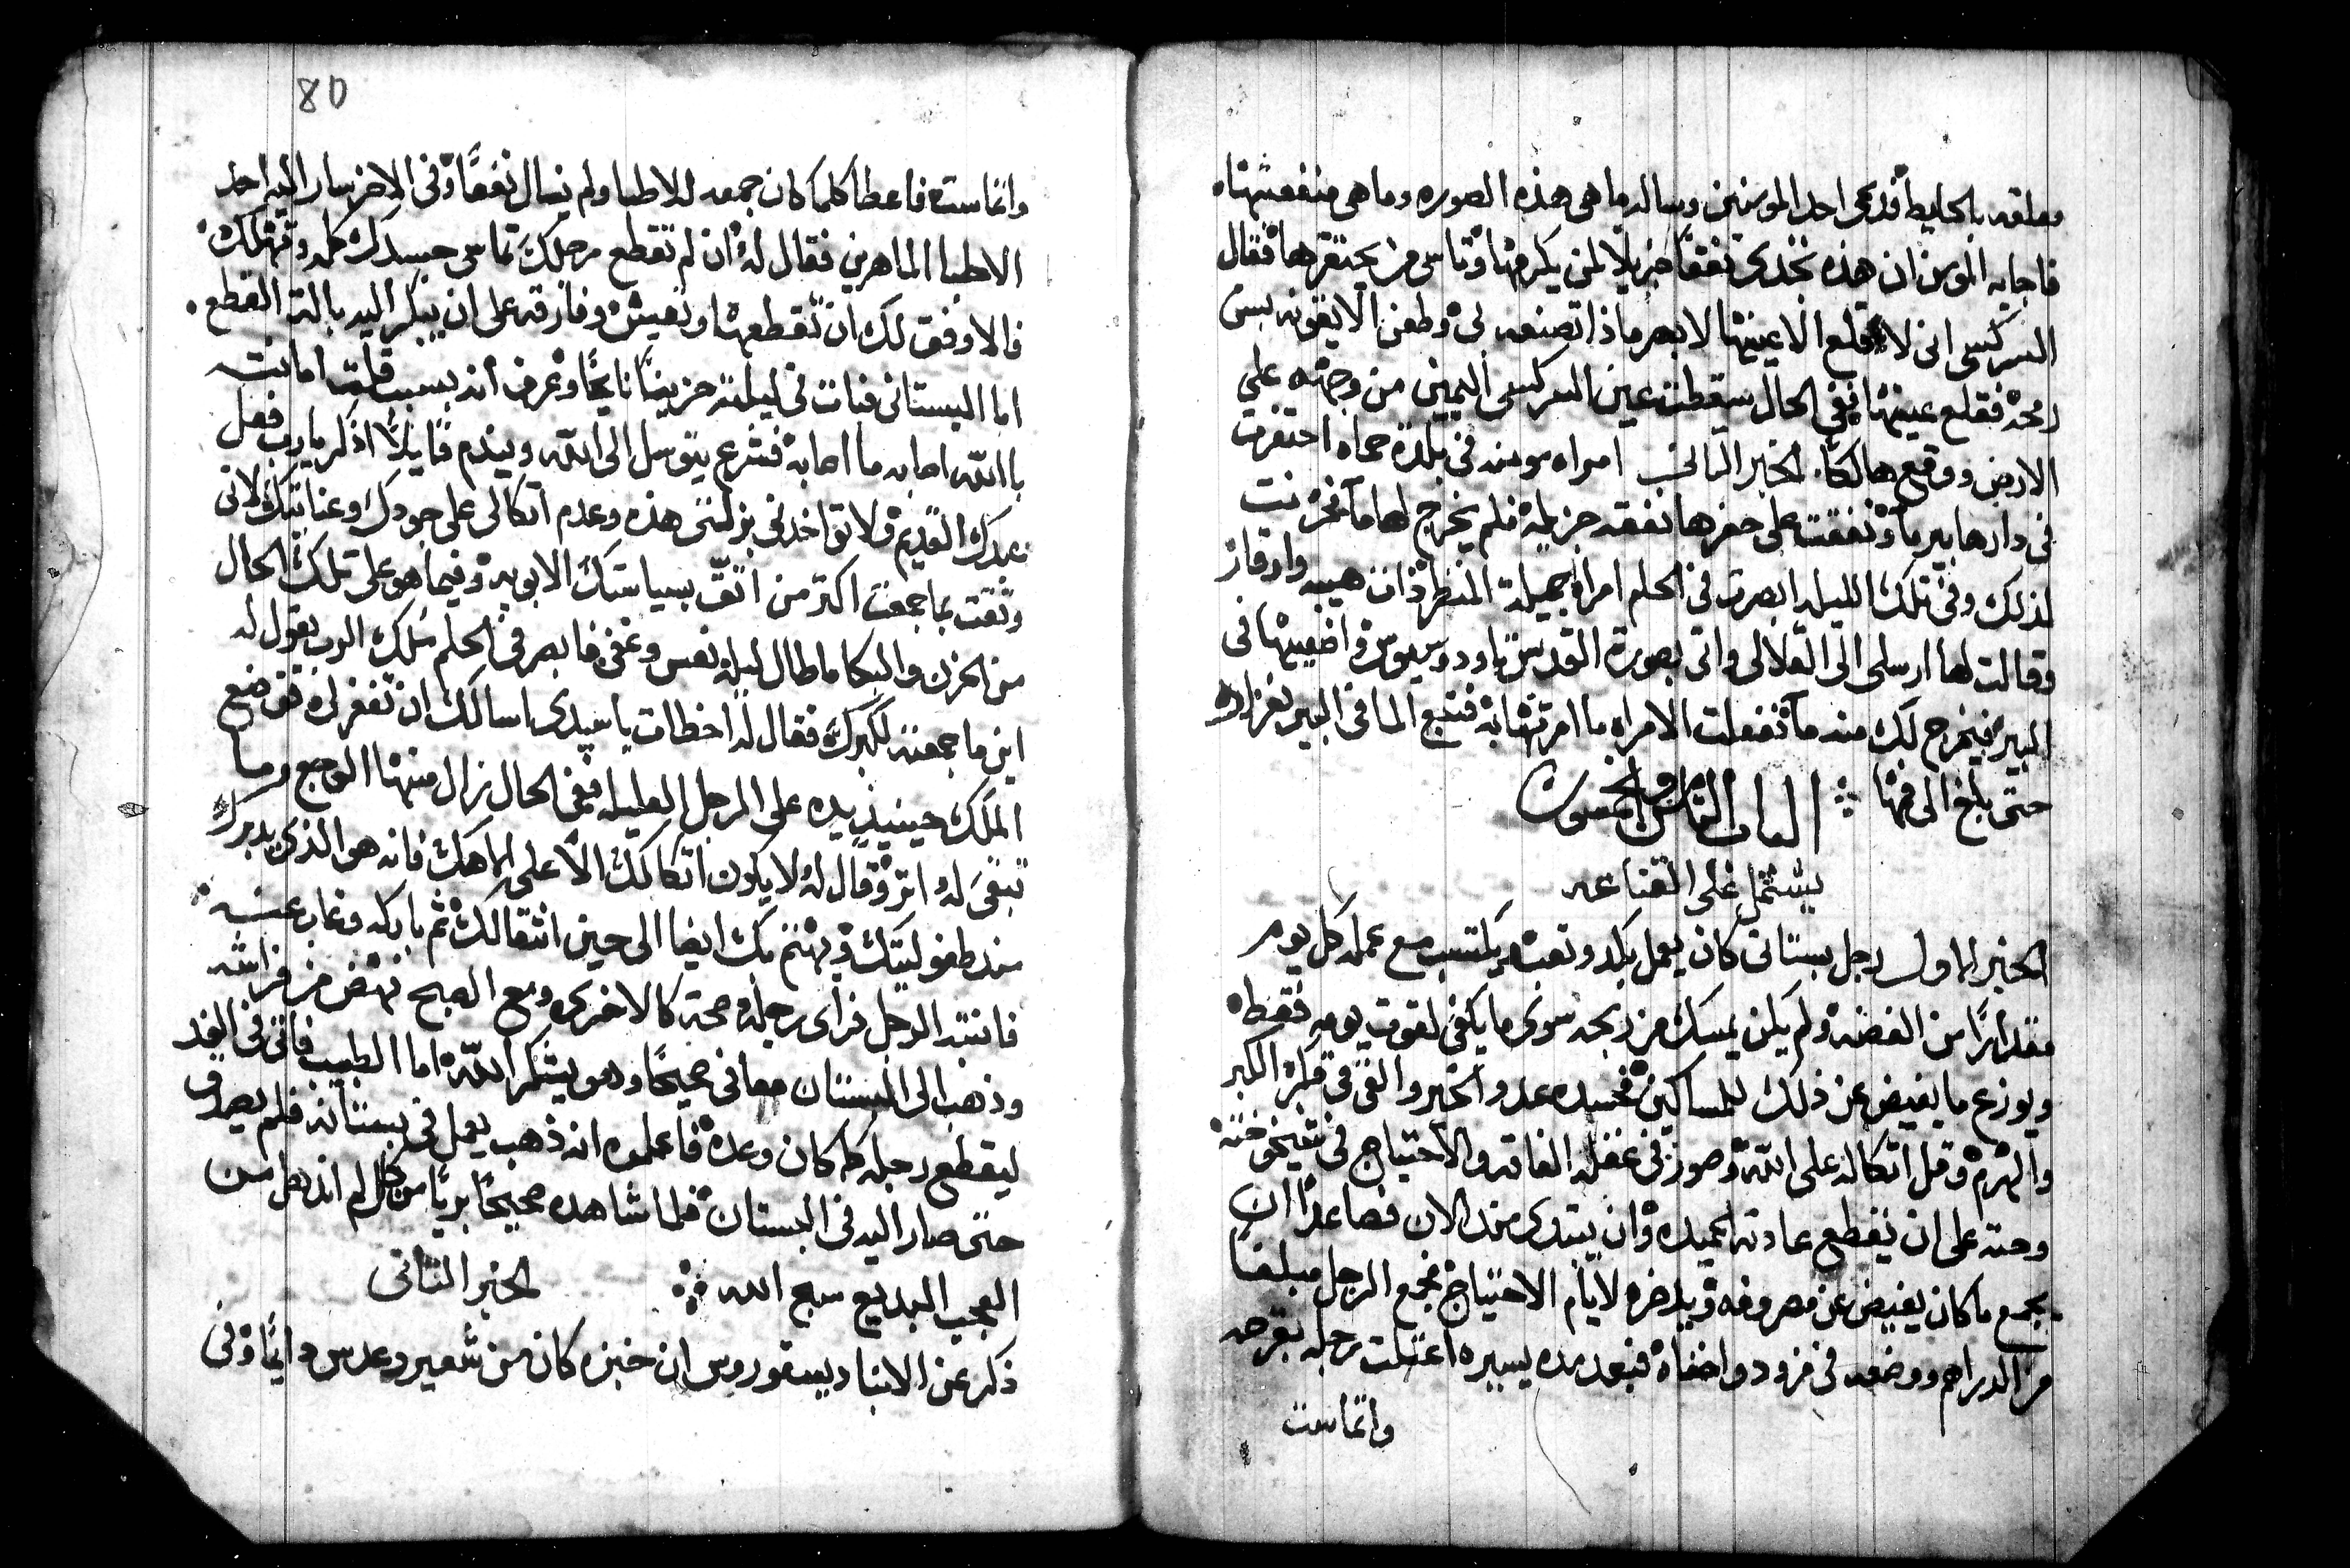 معلقه بالحايط فدعى احد المومنين وساله ما هى هذه الصوره وما هى منفعتها
فاجابه المومن ان هذه تجدى نفعًا جزيلا لمن يكرمها وتاسى من يحتقرها فقال
السركسى انى لاقلع الا عينها لابصر ماذا تصنعه لى وطعن الايقونه بسن
رمحه فقلع عينها ففى الحال سقطت عين السركسى اليمين من وجهه على
الارض ووقع هالكًا الخبر الثالث امراه مومنه فى بلدة حماه احتفرت
فى دارها بير ماء ونفقت على حفرها نفقه جزيله فلم يخرج لها ماء فحزنت
لذلك وفى تلك الليله ابصرت فى الحلم امراه جميلة المنظر ذات هيبه واوقار
وقالت لها ارسلى الى القلالى واتى بصورة القديس تاودوسيوس واضعيها فى
البير فيخرج لك منه ماء ففعلت الامراه ما امرتها به فنبع الما فى البير بغزاره
حتى بلغ الى فمها ؞ الباب الثامن والخمسون
يشتمل على القناعه
الخبر الاول رجل بستانى كان يعمل بكد وتعب ويكتسب مع عمله كل يوم
مقدارًا من الفضه ولم يكن يمسك من ربحه سوى ما يكفى لقوت يومه فقط
ويوزع ما يفيض عن ذلك للمساكين فحسده عدو الخير والقى فى فكره الكبر
والهرم وقل اتكاله على الله وصور فى عقله الفاقه والاحتياج فى شيخوخته
وحثه على ان يقطع عادته الحميده وان يبتدى منذ الان فصاعدًا ان
يجمع ما كان يفيض عن مصروفه ويدخره لايام الاحتياج فجمع الرجل مبلغًا
من الدراهم ووضعه فى مزود واخفاه فبعد مده يسيره اعتلت رجله بقرحه
واتماست
80
واتماست فاعطا كلما كان جمعه للاطبا ولم ينال نفعًا وفى الاخر سار اليه احد
الاطبا الماهرين فقال له ان لم تقطع رجلك تماسى جسدك كله وتهلك
فالاوفق لك ان تقطعها وتعيش وفارقه على ان يبكر اليه بالة القطع
اما البستانى فبات فى ليلته حزينًا نايحًا وعرف انه بسبب قلت امانته
باالله اصابه ما اصابه فشرع يتوسل الى الله ويندم قايلًا اذكر يارب فعل
عبدك القديم ولا تواخدنى بزلتى هذه وعدم اتكالى على جودك وعنايتك لانى
وثقت بما جمعت اكتر من اتق بسياستك الابويه وفيما هو على تلك الحال
من الحزن والبكا ما طال ليله نعس وغفى فابصر فى الحلم ملك الرب يقول له
اين ما جمعته لكبرك فقال له اخطات يا سيدى اسالك ان تغفر لى فوضع
الملك حينيذ يده على الرجل العليله ففى الحال زال منها الوجع وما
تبقى له اثر وقال له لا يكون اتكالك الا على الاهك فانه هو الذى يدبرك
منذ طفوليتك ويهتم بك ايضا الى حين انتقالك ثم باركه وغاب عنه
فانتبه الرجل فراى رجله صحة كالاخرى ومع الصبح نهض من فراشه
وذهب الى البستان معافى صحيحًا وهو يشكر الله اما الطبيب فاتى فى الغد
ليقطع رجله كما كان وعده فاعلموه انه ذهب يعمل فى بستانه فلم يصدق
حتى صار اليه فى البستان فلما شاهده صحيحًا بريًا من كل الم اندهل من
العجب البديع سبح الله ؞ الخبر الثانى
ذكر عن الانبا ديسقوروس ان خبزه كان من شعير وعدس دايمًا وفى